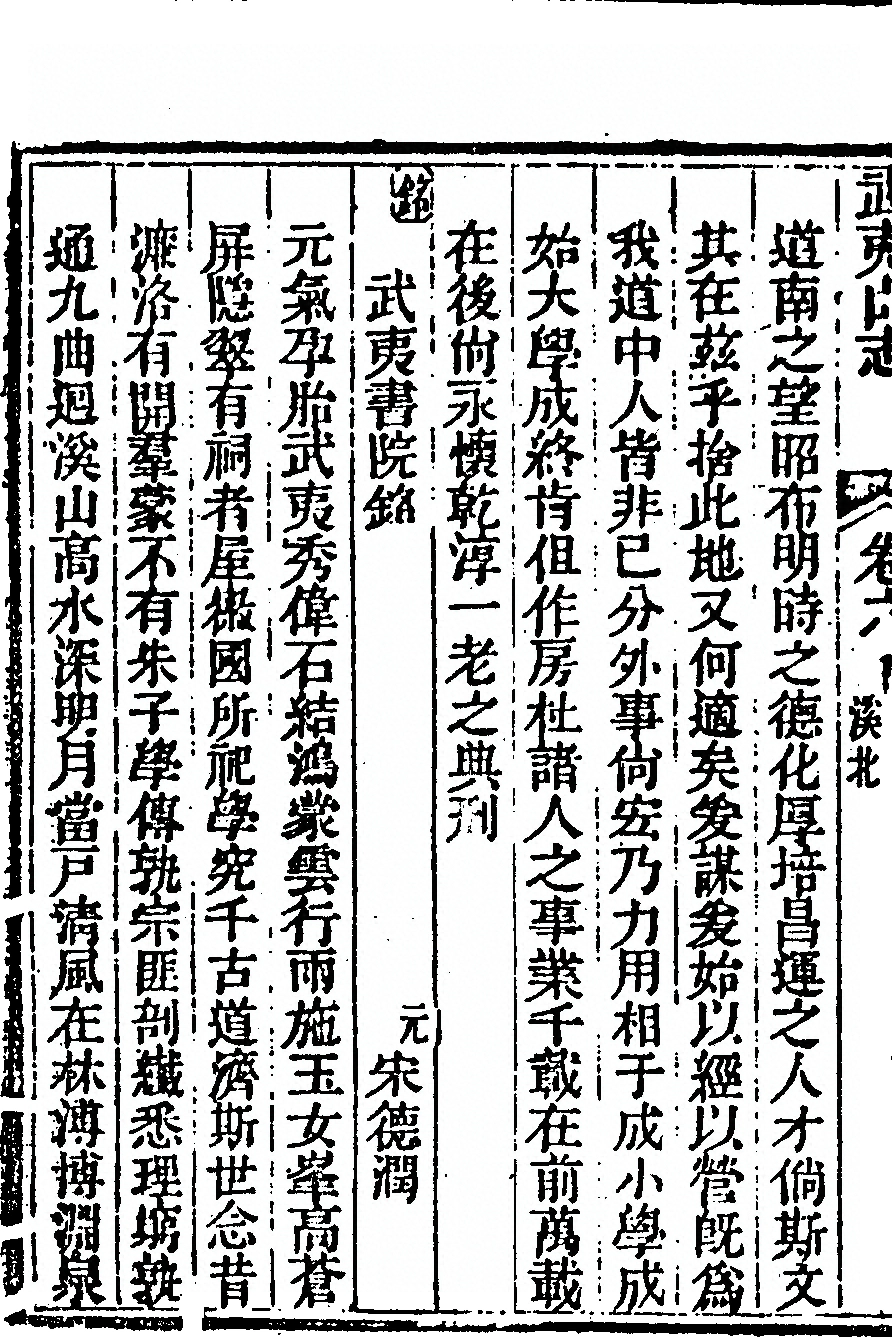 武夷山志 卷六 溪北
道南之望昭布明時之德化厚培昌運之人才倘斯文
其在茲乎捨此地又何適矣爰謀爰始以經以營既爲
我道中人皆非已分外事尙宏乃力用相于成小學成
始大學成終肯但作房杜諸人之事業千載在前萬載
在後尙永懷乾淳一老之典刑
銘 武夷書院銘 元 宋德潤
元氣孕胎武夷秀偉石結鴻蒙雲行雨施玉女峯高蒼
屏隱翠有祠者屋徽國所祀學究千古道濟斯世念昔
濂洛有開羣蒙不有朱子學傳孰宗匪剖纖悉理窮孰
通九曲迴溪山高水深明月當戸淸風在林溥博淵泉